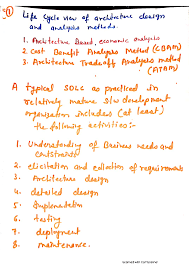 Life Cycle view of architecture design
and analysis methods.
1. Architecture Based, economic analysis
2. Cost Benefit Analysis Method (CBAM)
3. Architecture Tradeoff Analysis method
(ATAM)
A typical SDLC as practiced in
relatively mature S/w development
organisation includes (at least)
the following activities:-
1. Understanding of Business needs and
constraints
2. elicitation and collection of requirements
3. Architecture design
4. detailed design
5. Implementation
6. testing
7. deployment
8. maintenance.